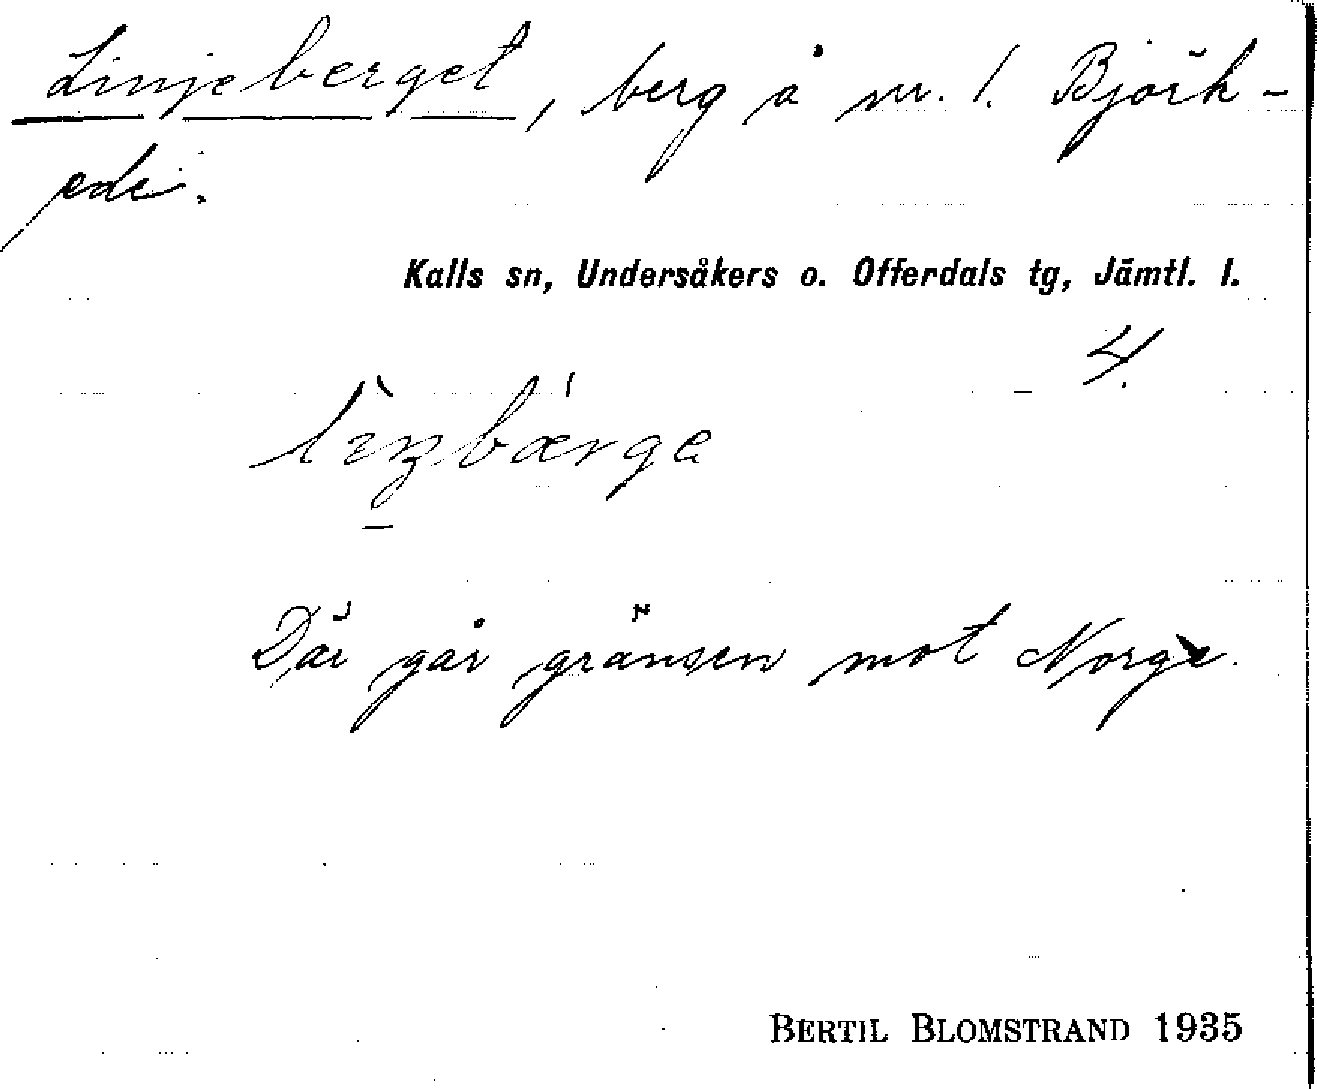 Linjeberget, berg å nr. 1. Björk-
ede.
Kalls sn, Undersåkers o. Offerdals tg, Jämtl. l.
4.
Där går gränsen mot Norge.
BERTIL BLOMSTRAND 1935